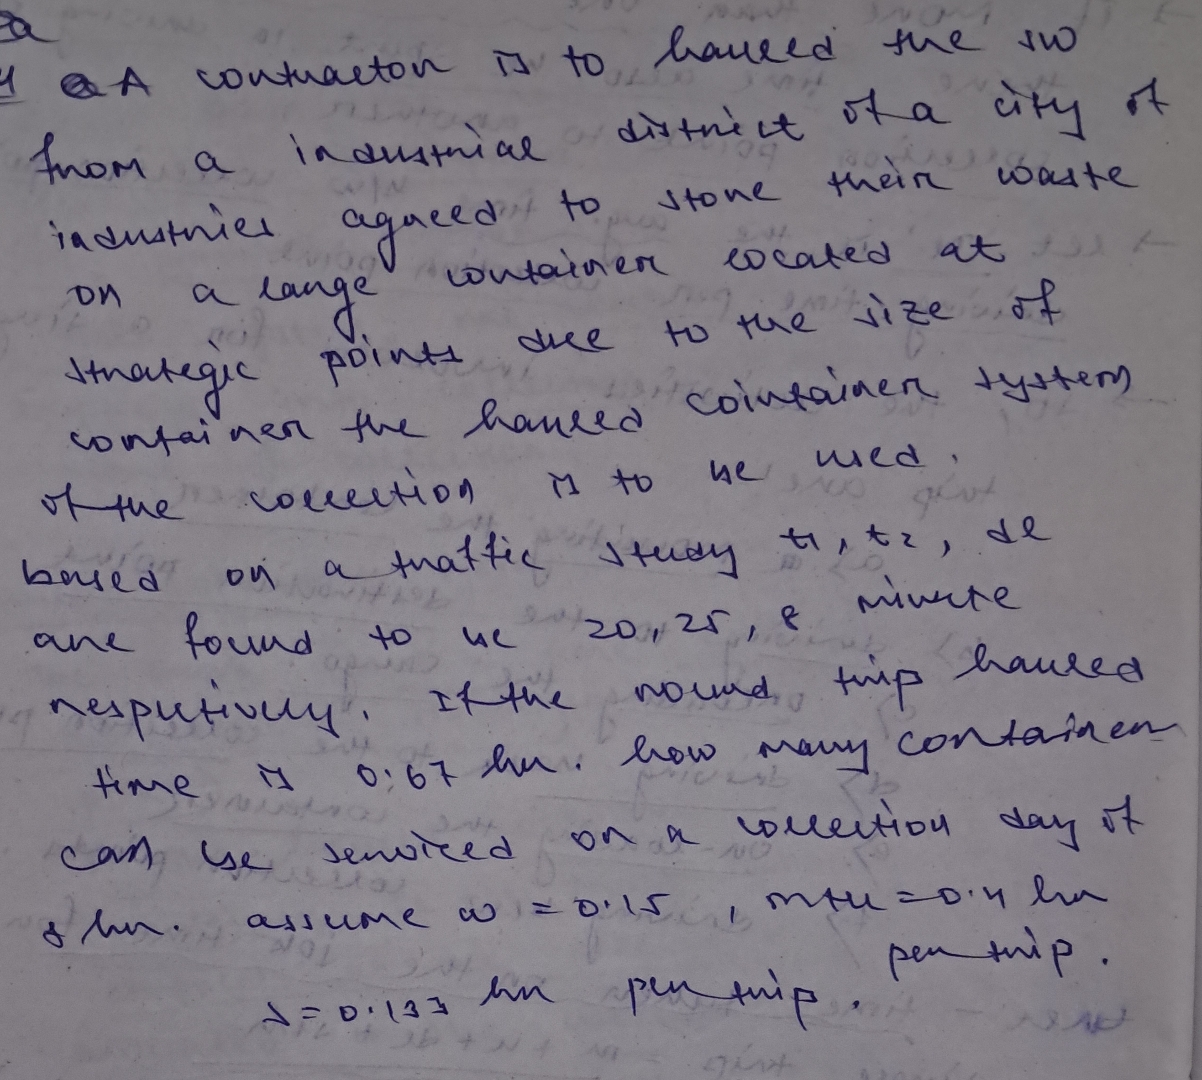 A contractor is to hauled the sw
from a industrial district of a city if
industries agreed to store their waste
on a large container located at
strategic points due to the size of
container the hauled cointainer system
of the collection is to be used.
based on a traffic study t1, t2, de
are found to be 20, 25, 8 minute
respectively. If the round trip hauled
time is 0.67 hr. how many container
can be serviced on a collection day of
8 hr. assume w = 0.15, m+u = 0.4 hr
per trip.
s = 0.133 hr per trip.